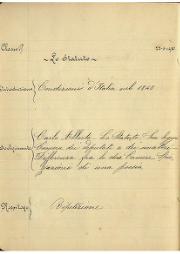 Classe V
Lo Statuto
Introduzione
Condizioni d'Italia nel 1848
Svolgimento
Carlo Alberto - Lo Statuto - La legge
Camera dei deputati e dei senatori
Differenza fra le due Camere -
di una poesia
Riepilogo
Ripetizione